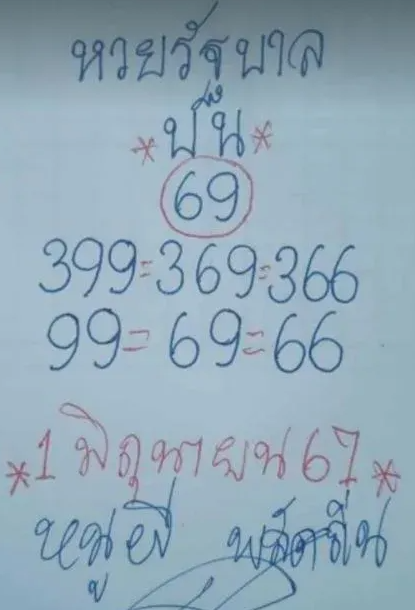 หวยรัฐบาล
*ปืน*
69
399=369=366
99=69=66
*1 มิถุนายน 67*